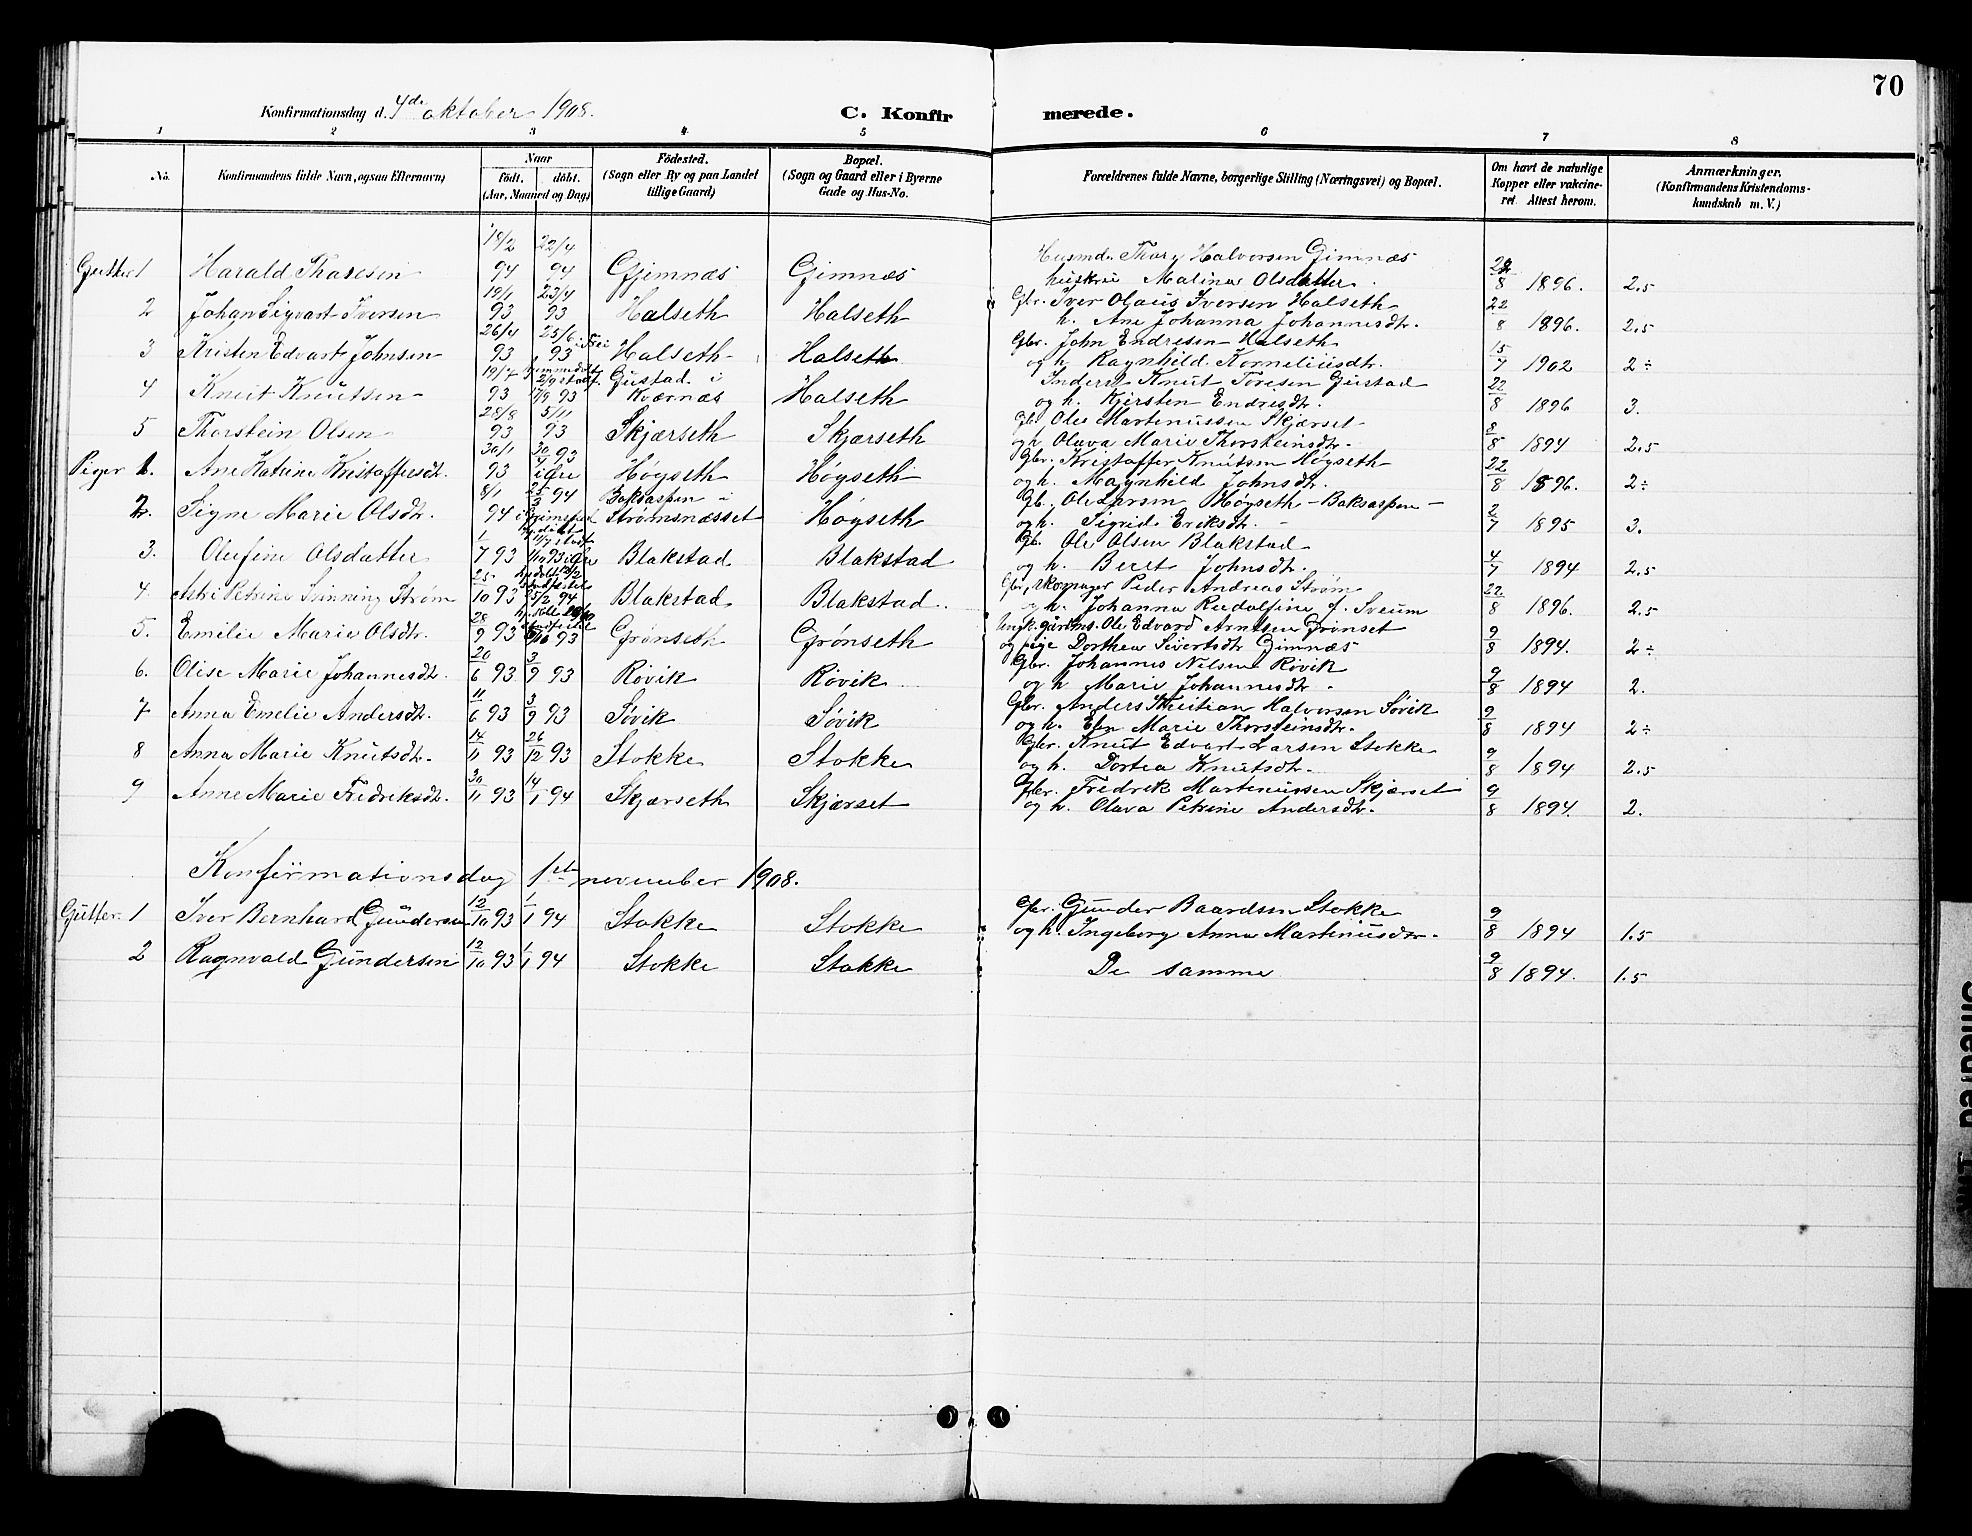 70
Konfirmationsdag d. 4de oktober 1908.
C. Konfirmerede.
1 2 3 4 5 6 7 8
No.
Konfirmandens fulde Navn, ogsaa Efternavn)
Naar
födt. döbt.
(Aar, Maaned og Dag)
Födested.
(Sogn eller By og paa Landet
tillige Gaard)
Bopæl.
(Sogn og Gaard eller i Byerne
Gade og Hus-No.
Forældrenes fulde Navne, borgerlige Stilling (Næringsvei) og Bopæl.
Om havt de naturlige
Kopper eller vakcine-
ret Attest herom.
Anmærkninger.
(Konfirmandens Kristendoms-
kundskab m. V.)
Gutter 1 Harald Thoresen 18/2 94 22/4 94 Gjimnæs Gimnæs Husmd. Thore Halvorsen Gimnæs
hustru Malina Olsdatter 22/8 1896. 2.5
2 Johan Sigvart Iversen 19/1 93 23/4 93 Halseth Halseth Gbr. Iver Olaus Iversen Halseth
h. Ane Johanna Johannesdtr. 22/8 1896. 2.5
3 Kristen Edvart Johnsen 26/4 93 25/6 93 Halseth Halseth Gbr. John Endresen Halseth
og h. Ragnhild Korneliusdtr. 15/7 1902 2÷
4 Knut Knutsen 19/7 93 17/9 93 Gustad i Kværnæs Halseth Inderst Knut Toresen Gustad
og h. Kjersten Endresdtr. 22/8 1896 3.
5 Thorstein Olsen 28/8 93 5/11 93 Skjærseth Skjærseth Gbr. Ole Martinussen Skjærset
og h. Olava Marie Thorsteinsdtr. 8/8 1894 2.5
Piger 1. Ane Katrine Kristoffersdtr. 30/1 93 30/4 93 i Øre Høgseth Høgseth Gbr. Kristoffer Knutsen Høgseth
og h. Magnhild Johnsdtr. 22/8 1896. 2÷
2. Signe Marie Olsdtr. 8/1 94 25/3 94 Baksaspen i Strømsnæsset Høgseth Gb. Ole Larsen Høgseth-Baksaspen
og h. Sigrid Eriksdtr. 2/7 1895 3.
3. Olufine Olsdatter 1/7 93 1/10 93 i Øre Blakstad Blakstad Gb. Ole Olsen Blakstad
og h. Beret Johnsdtr. 4/7 1894 2.5
4 Petrine Strøm 25/10 93 25/2 94 Blakstad Blakstad Gbr., skomager Peder Andreas Strøm
og h. Johanna Rudolfine f. Sveum 22/8 1896. 2.5
5. Emilie Marie Olsdtr. 28/9 93 93 Grønseth Grønseth Ungk. gårdms. Ole Edvard Arntsen Grønset
og pige Dorthea Sivertsdtr Gimnæs 9/8 1894. 2÷
6. Olise Marie Johannesdtr. 20/6 93 3/9 93 Røvik Røvik Gbr. Johannes Nilsen Røvik
og h. Marie Johannesdtr. 9/8 1894 2.
7 Anna Emelie Andersdtr. 11/6 93 3/9 93 Søvik Søvik Gbr. Anders Kristian Halvorsen Søvik
og h. Elen Marie Thorsteinsdtr. 9/8 1894 2÷
8 Anna Marie Knutsdtr. 14/11 93 26/12 93 Stokke Stokke Gbr. Knut Edvart Larsen Stokke
og h. Dortea Knutsdtr. 9/8 1894 2.5
9 Anne Marie Fredriksdtr. 30/11 93 14/1 94 Skjærseth Skjærset Gbr. Fredrik Martinussen Skjærset
og h. Olava Petrine Andersdtr. 9/8 1894. 2.
Konfirmationsdag 1ste november 1908.
Gutter. 1 Iver Bernhard Gundersen 12/10 93 1/1 94 Stokke Stokke Gbr. Gunder Baardsen Stokke
og h. Ingeborg Anna Martinusdtr. 9/8 1894 1.5
2 Ragnvald Gundersen 12/10 93 1/1 94 Stokke Stokke De samme 9/8 1894. 1.5